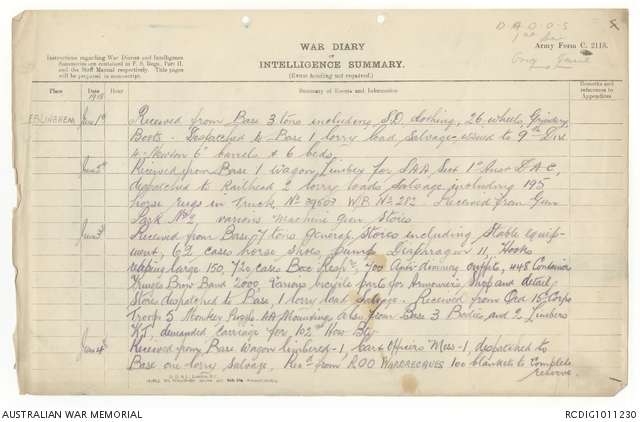 D.A.D.O.S
1st Div
WAR DIARY
OR
INTELLIGENCE SUMMARY.
(Erase heading not required.)
Army Form C. 2118.
Instructions regarding War Diaries and Intelligence
Summaries are contained in F. S. Regs., Part II.
and the Staff Manual respectively. Title pages
will be prepared in manuscript.
Place Date Hour Summary of Events and Information Remarks and references to Appendices
1918
EBLINGHEM June 1st Received from Base 3 tons including S.D. clothing, 26 wheels, Grindery
Boots - Despatched to Base 1 lorry load, Salvage issued to 9th Div
4 Newton 6" barrels & 6 beds.
June 2nd Received from Base 1 Wagon Limber for SAA, Sect 1st Aust D.A.C,
dispatched to Railhead 2 lorry loads Salvage including 195
horse rugs in Truck No W.R. No 212 Received from Gun
Park No 2, various machine gun Stores
June 3rd Received from Base 7 tons General Stores including Stable equip-
ment, 62 cases horse shoes, Pumps Diaphragm 11, Hooks
reaping large 150, 720 cases Box Resp, 700 Anti-dimming outfits, 448 Containers
Brow Band 2000 Various bicycle parts for Armourers Shop and detail
Stores despatched to Base, 1 lorry load Salvage. Received from Ord 15 Corps
Troops 5 Monkey AA Mountings also from Base 3 Bodies, and 2 Limbers
demanded Carriage for 102nd How Bty
June 4th Received from Base Wagon limbered-1, Cart Officers Mess-1, dispatched to
Base one lorry Salvage, Rec'd from ROO WARDRECQUES 100 blankets to complete
reserve.
AUSTRALIAN WAR MEMORIAL
RCDIG1011230